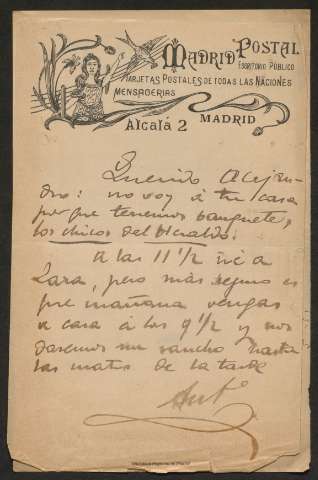 MADRID POSTAL
ESCRITORIO PÚBLICO
TARJETAS POSTALES DE TODAS LAS NACIONES
MENSAGERIAS
Alcalá 2 MADRID
Querido Alejan-
dro: no voy á tu casa
porque tenemos banquete,
los chicos del Heraldo.
A las 11 1/2 iré a
Lara, pero más seguro es
que mañana vengas
a casa á las 9 1/2 y nos
daremos un rancho hasta
las de la tarde
Antº